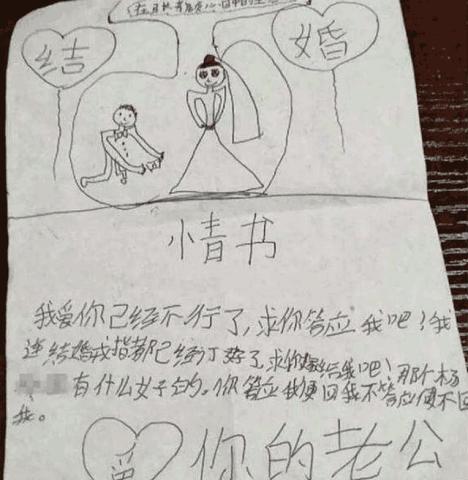 结 婚
情书
我爱你已经不行了,求你答应我吧!我
连结婚戒指都已经订好了,求你嫁给我吧!那个杨
有什么好的。你答应我便回我不答应便不回
我。
爱 你的老公